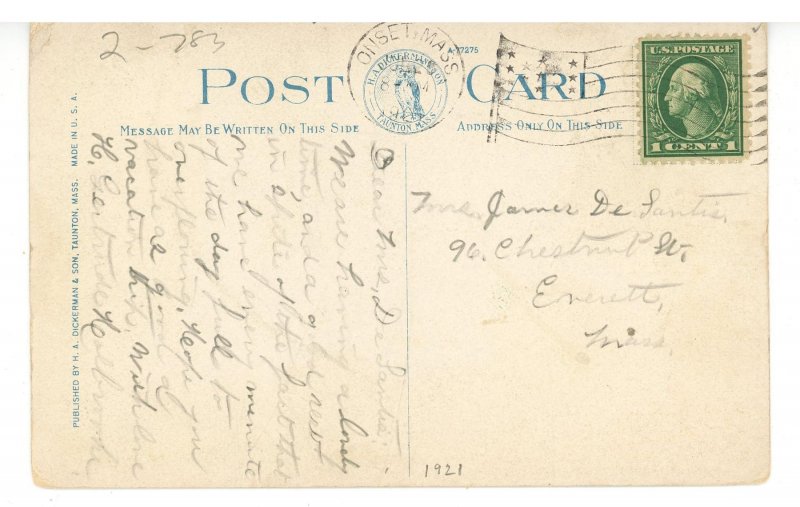 2-783
A-77275
POST CARD
ONSET, MASS.
H.A. DICKERMAN & SON
TAUNTON, MASS.
U.S. POSTAGE
1 CENT 1
MESSAGE MAY BE WRITTEN ON THIS SIDE
ADDRESS ONLY ON THIS SIDE
PUBLISHED BY H. A. DICKERMAN & SON, TAUNTON, MASS. MADE IN U. S. A.
Dear Mrs. De Santis,
We are having a lovely
time, and a good rest
in spite of the fact that
we have every minute
of the day full to
overflowing. Hope you
have as good a
vacation this. With love
H. Gertrude
Mrs. James De Santis
96 Chestnut St,
Everett,
Mass.
1921